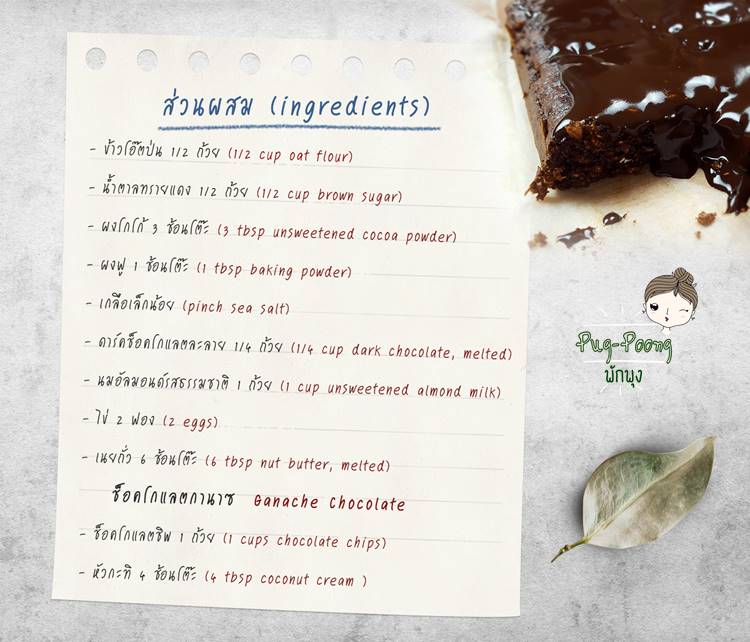 ส่วนผสม (ingredients)
- ข้าวโอ๊ตป่น 1/2 ถ้วย (1/2 cup oat flour)
- น้ำตาลทรายแดง 1/2 ถ้วย (1/2 cup brown sugar)
- ผงโกโก้ 3 ช้อนโต๊ะ (3 tbsp unsweetened cocoa powder)
- ผงฟู 1 ช้อนโต๊ะ (1 tbsp baking powder)
- เกลือเล็กน้อย (pinch sea salt)
- ดาร์คช็อคโกแลตละลาย 1/4 ถ้วย (1/4 cup dark chocolate, melted)
- นมอัลมอนด์รสธรรมชาติ 1 ถ้วย (1 cup unsweetened almond milk)
- ไข่ 2 ฟอง (2 eggs)
- เนยถั่ว 6 ช้อนโต๊ะ (6 tbsp nut butter, melted)
ช็อคโกแลตกานาซ Ganache Chocolate
- ช็อคโกแลตชิพ 1 ถ้วย (1 cups chocolate chips)
- หัวกะทิ 4 ช้อนโต๊ะ (4 tbsp coconut cream )
Pug-Poong
พักพุง